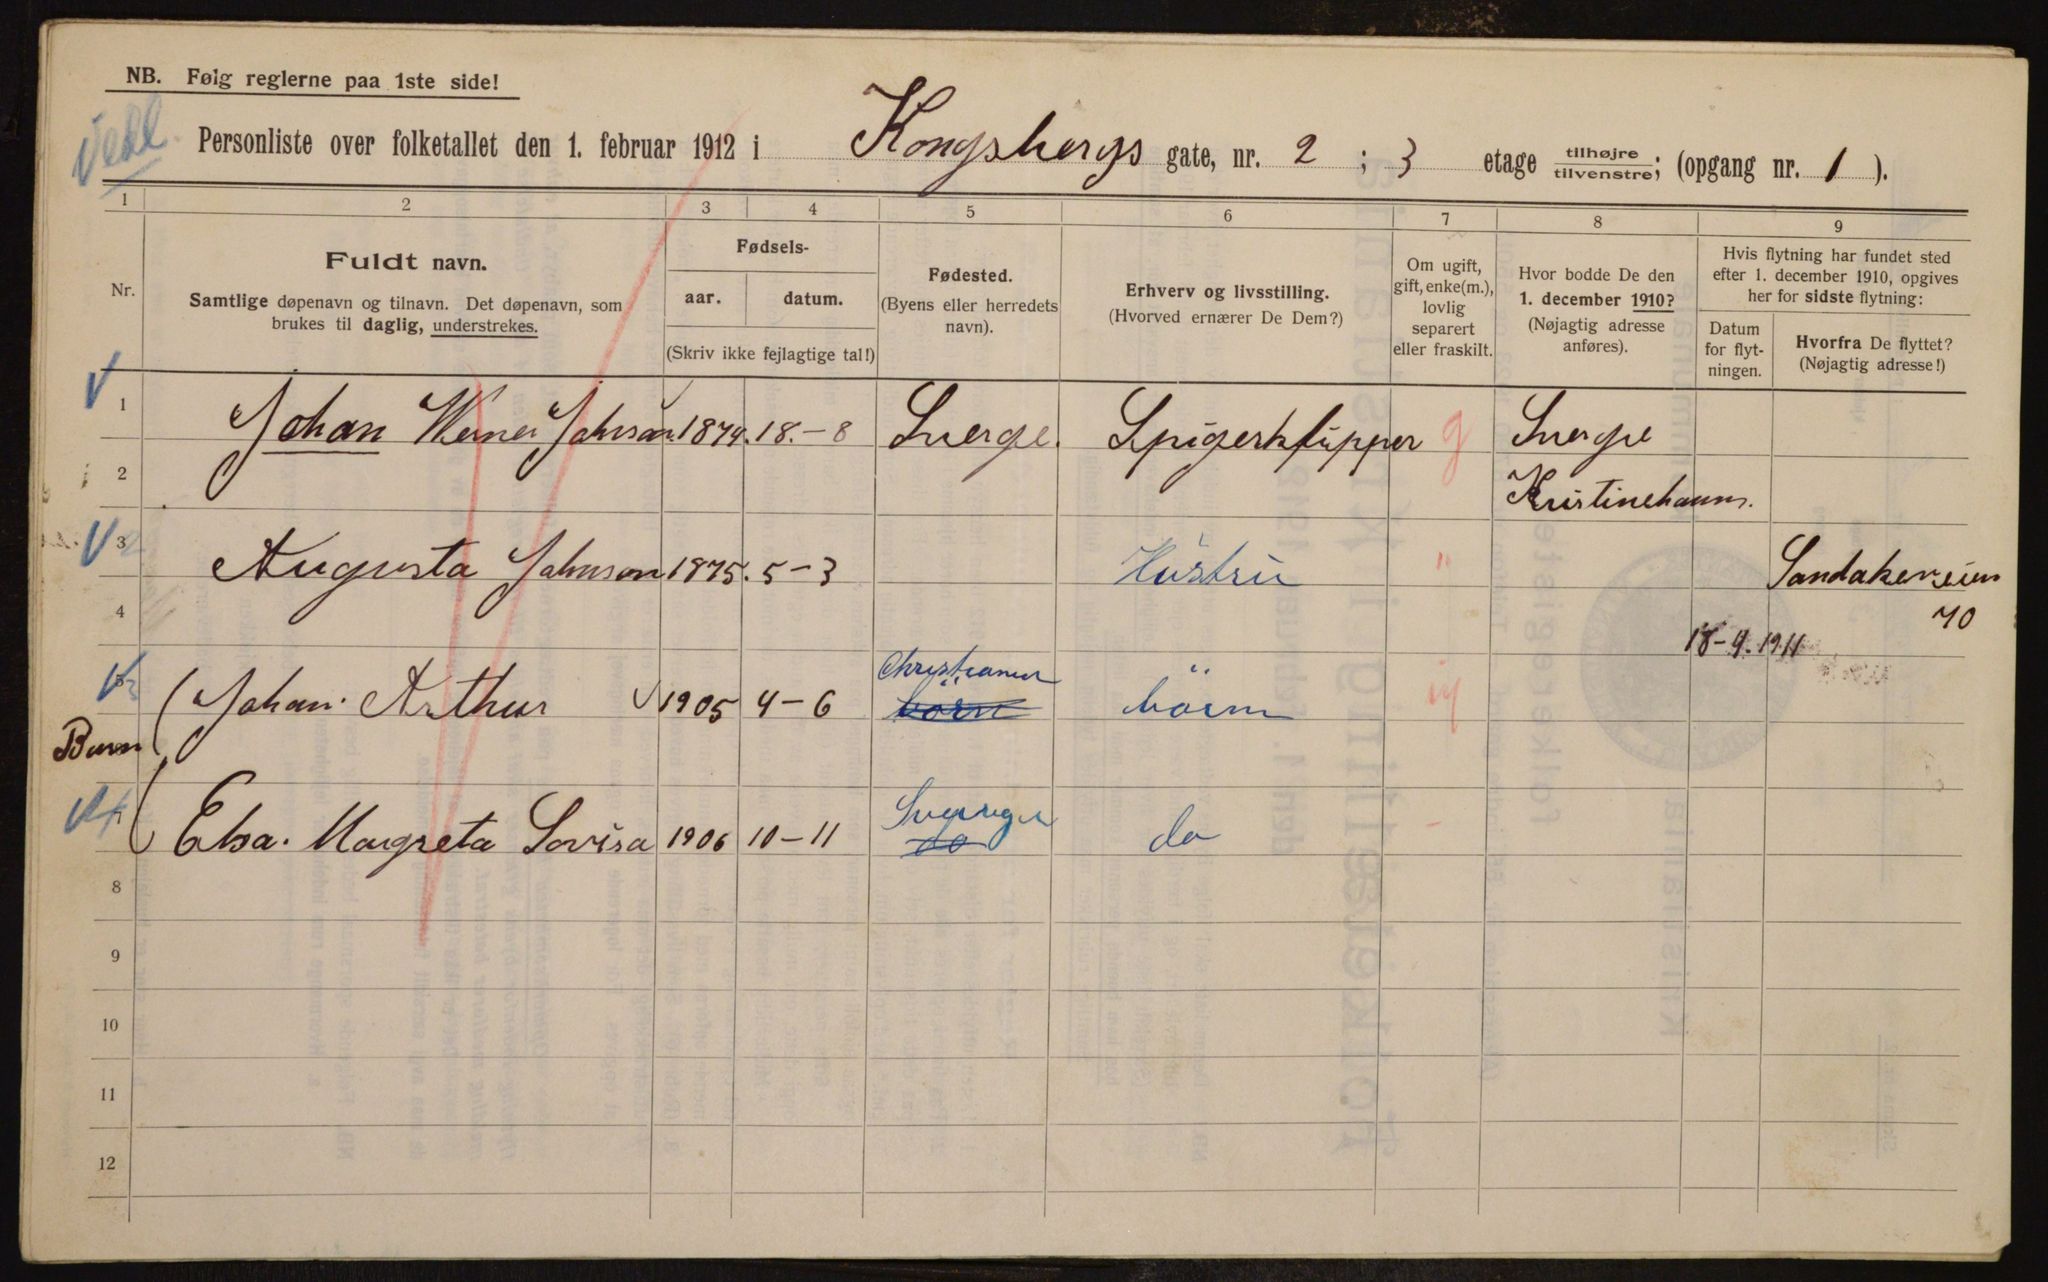 NB. Følg reglerne paa 1ste side!
Personliste over folketallet den 1. februar 1912 i Kongsbergs gate, nr. 2 ; 3 etage tilhøjre tilvenstre; (opgang nr. 1 ).
1 2 3 4 5 6 7 8 9
Nr.
Fuldt navn.
Samtlige døpenavn og tilnavn. Det døpenavn, som
brukes til daglig, understrekes.
Fødsels-
aar. datum.
(Skriv ikke fejlagtige tal!)
Fødested.
(Byens eller herredets
navn).
Erhverv og livsstilling.
(Hvorved ernærer De Dem?)
Om ugift,
gift, enke(m.),
lovlig
separert
eller fraskilt.
Hvor bodde De den
1. december 1910?
(Nøjagtig adresse
anføres).
Hvis flytning har fundet sted
efter 1. december 1910, opgives
her for sidste flytning:
Datum
for flyt-
ningen.
Hvorfra De flyttet?
(Nøjagtig adresse!)
1 Johan Werner Johnson 1874. 18.-8 Sverge. Spigerklipper g Sverge
2 Kristinehamn.
3 Augusta Johnson 1875. 5-3 Hustru " Sandakerveien
4 70
18-4. 1911
Johan Arthur 1905 4-6 Christiania börn börn ug
Barn
Elsa. Margreta Lovisa 1906 10-11 Sverige do do
8
9
10
11
12